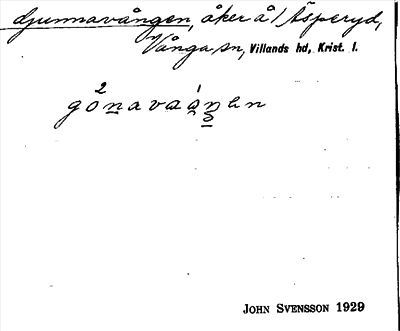 djunnavången, åker å 1 Äsperyd,
Vånga sn, Villands hd, Krist. l.
JOHN SVENSSON 1929